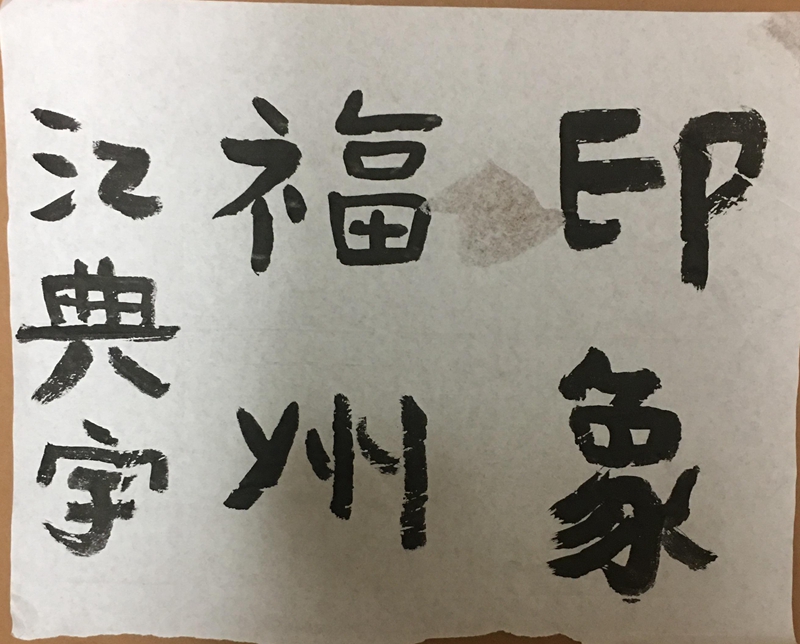 印象
福州
江典字